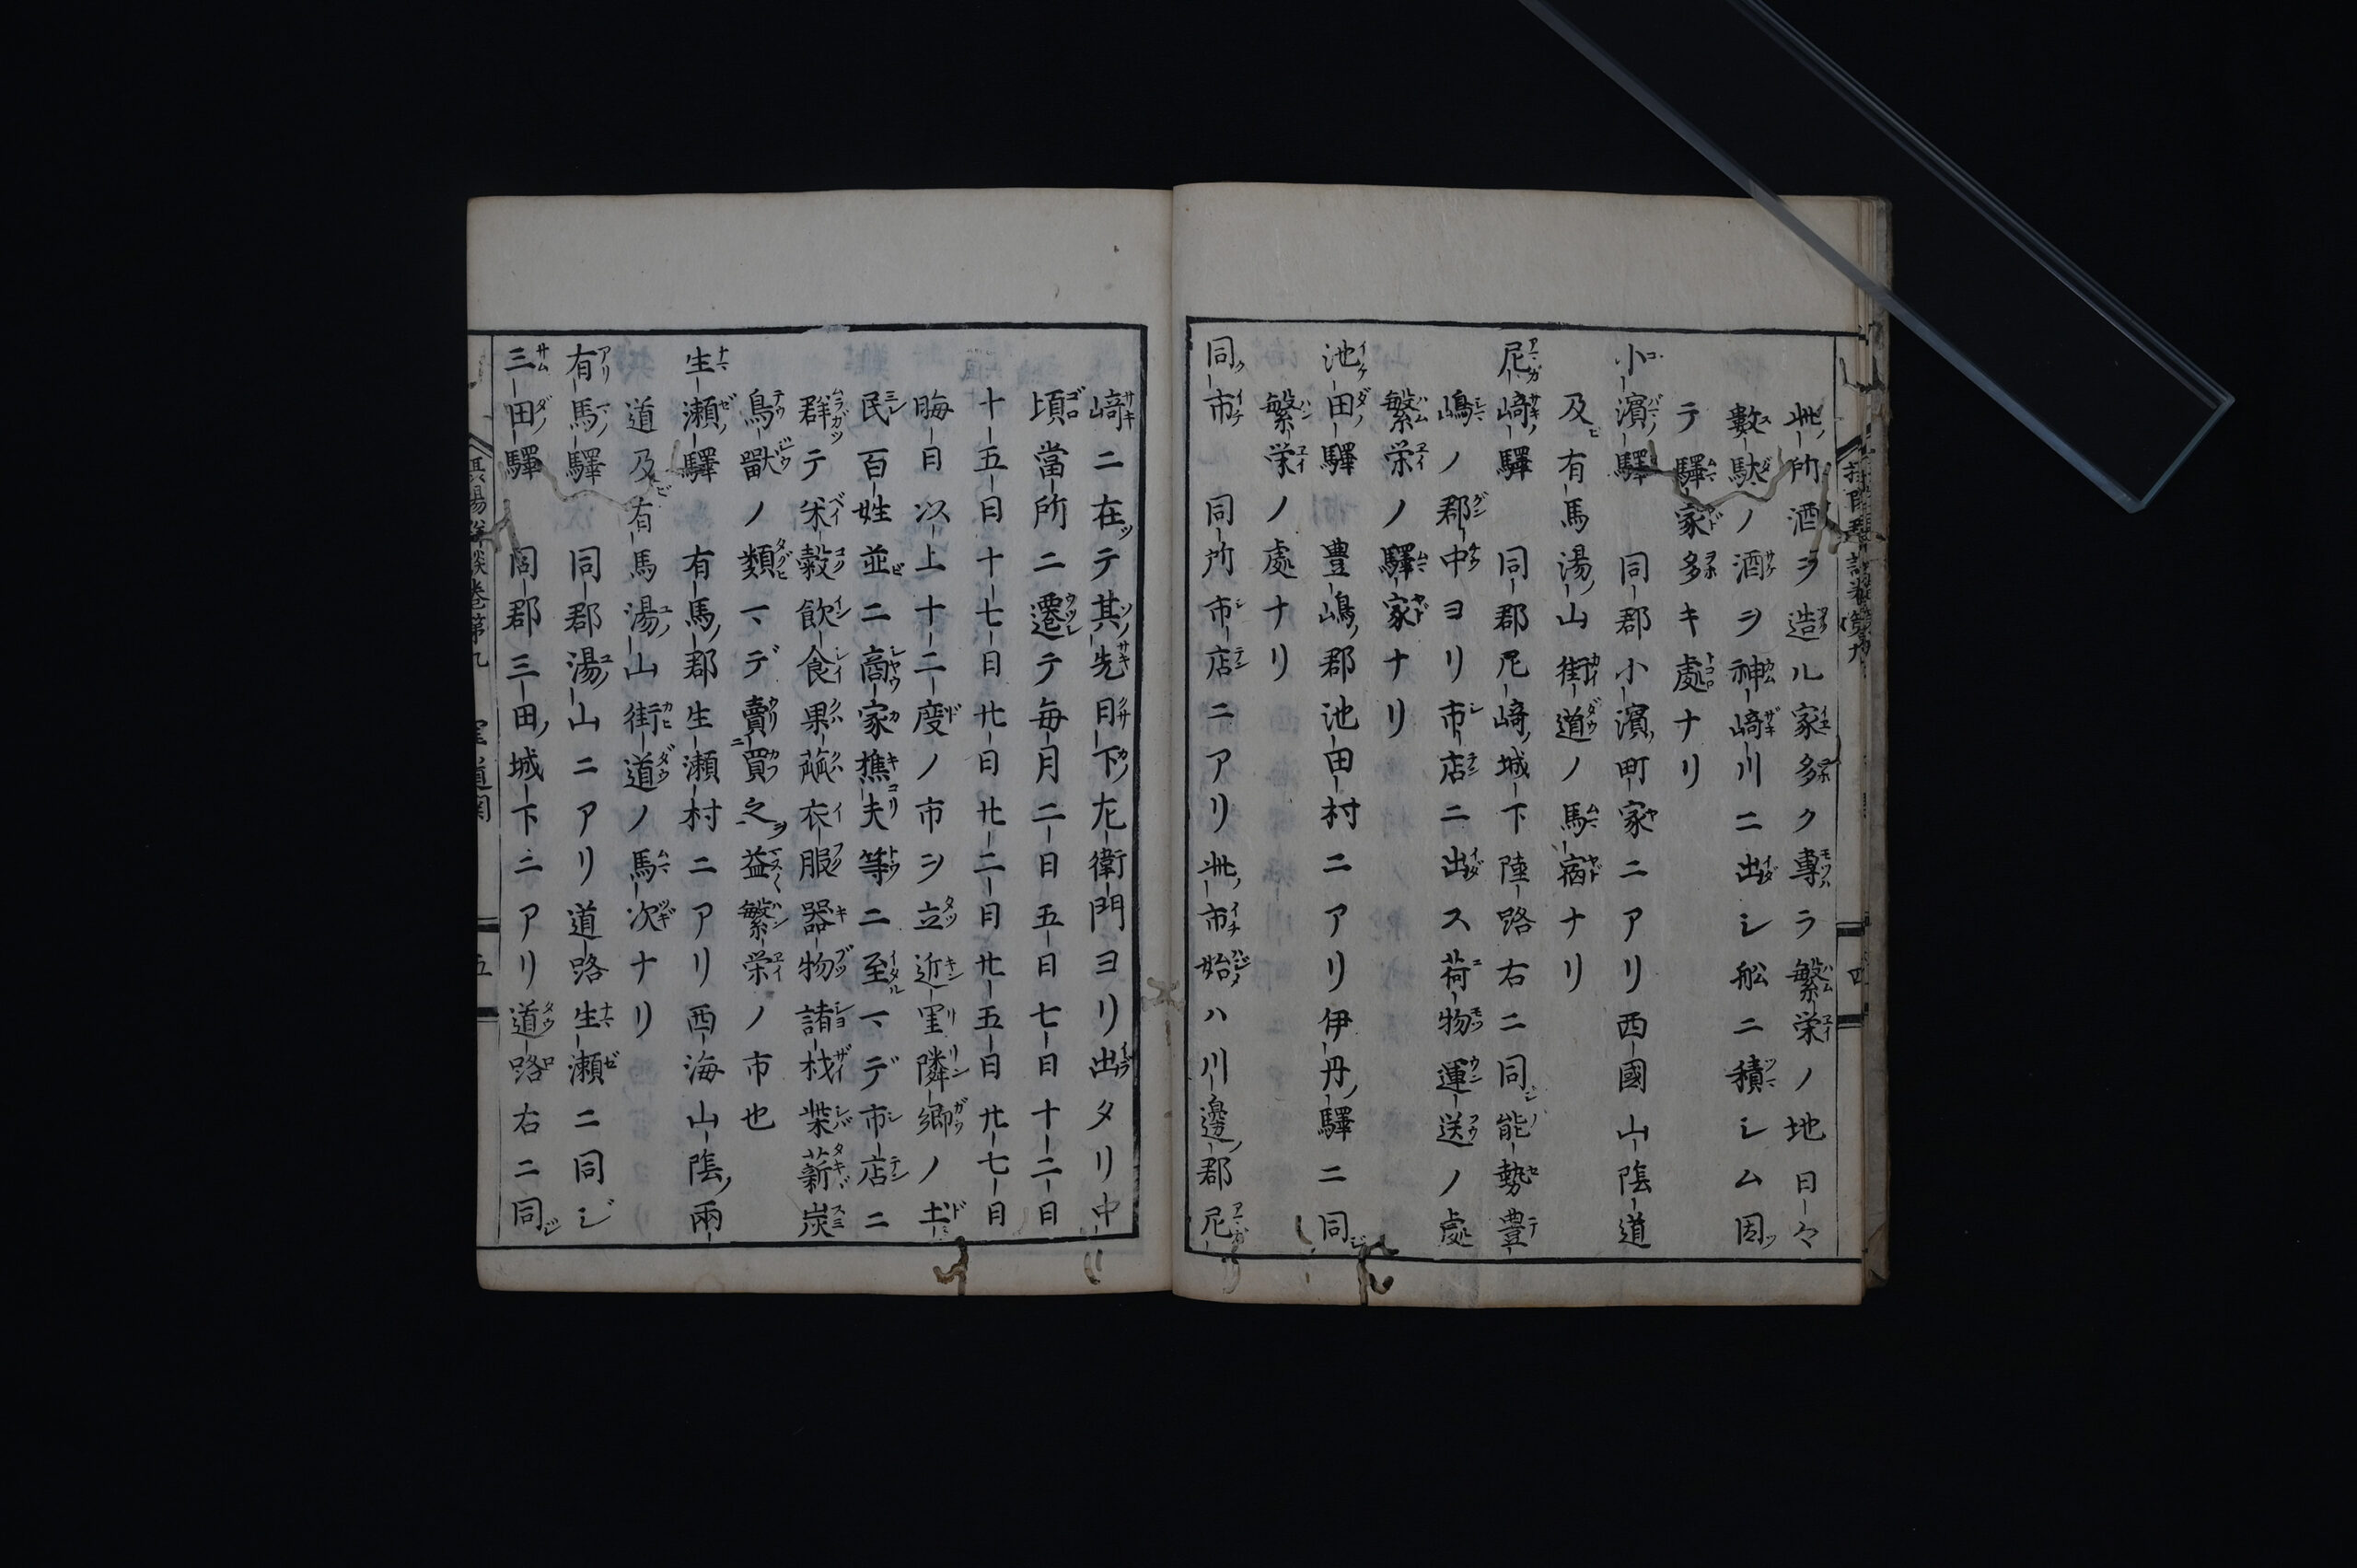 此所酒ヲ造ル家多ク專ラ繁栄ノ地日々
數駄ノ酒ヲ神﨑川ニ出シ舩ニ積シム固
テ驛家多キ處ナリ
小濱驛 同郡小濱町家ニアリ西國山陰道
及有馬湯山街道ノ馬宿ナリ
尼﨑驛 同郡尼﨑城下陸路右ニ同能勢豊
嶋ノ郡中ヨリ市店ニ出ス荷物運送ノ處
繁栄ノ驛家ナリ
池田驛 豊嶋郡池田村ニアリ伊丹驛ニ同
繁栄ノ處ナリ
同市 同所市店ニアリ此市始ハ川邊郡尼
﨑ニ在テ其先日下左衛門ヨリ出タリ中
頃當所ニ遷テ毎月二日五日七日十二日
十五日十七日廿日廿二日廿五日廿七日
晦日以上十二度ノ市ヲ立近里隣郷ノ土
民百姓並ニ商家樵夫等ニ至マデ市店ニ
群テ米穀飲食果蓏衣服器物諸材柴薪炭
鳥獸ノ類マデ賣買之益繁栄ノ市也
生瀬驛 有馬郡生瀬村ニアリ西海山陰兩
道及有馬湯山街道ノ馬次ナリ
有馬驛 同郡湯山ニアリ道路生瀬ニ同シ
三田驛 同郡三田城下ニアリ道路右ニ同
五